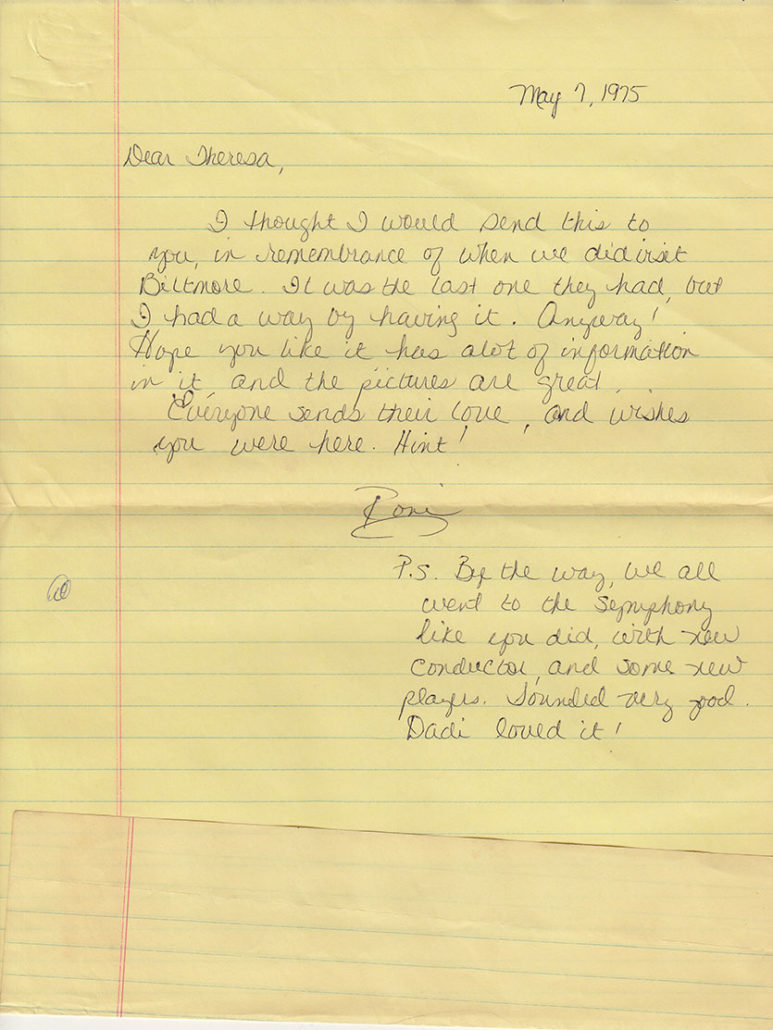 May 7, 1975
Dear Theresa,
I thought I would send this to
you, in remembrance of when we did visit
Biltmore. It was the last one they had, but
I had a way by having it. Anyway!
Hope you like it has alot of information
in it, and the pictures are great.
Everyone sends their love, and wishes
you were here. Hint!
Roni
P.S. By the way, we all
went to the Symphony
like you did, with new
conductor, and some new
players. Sounded very good.
Dadi loved it!